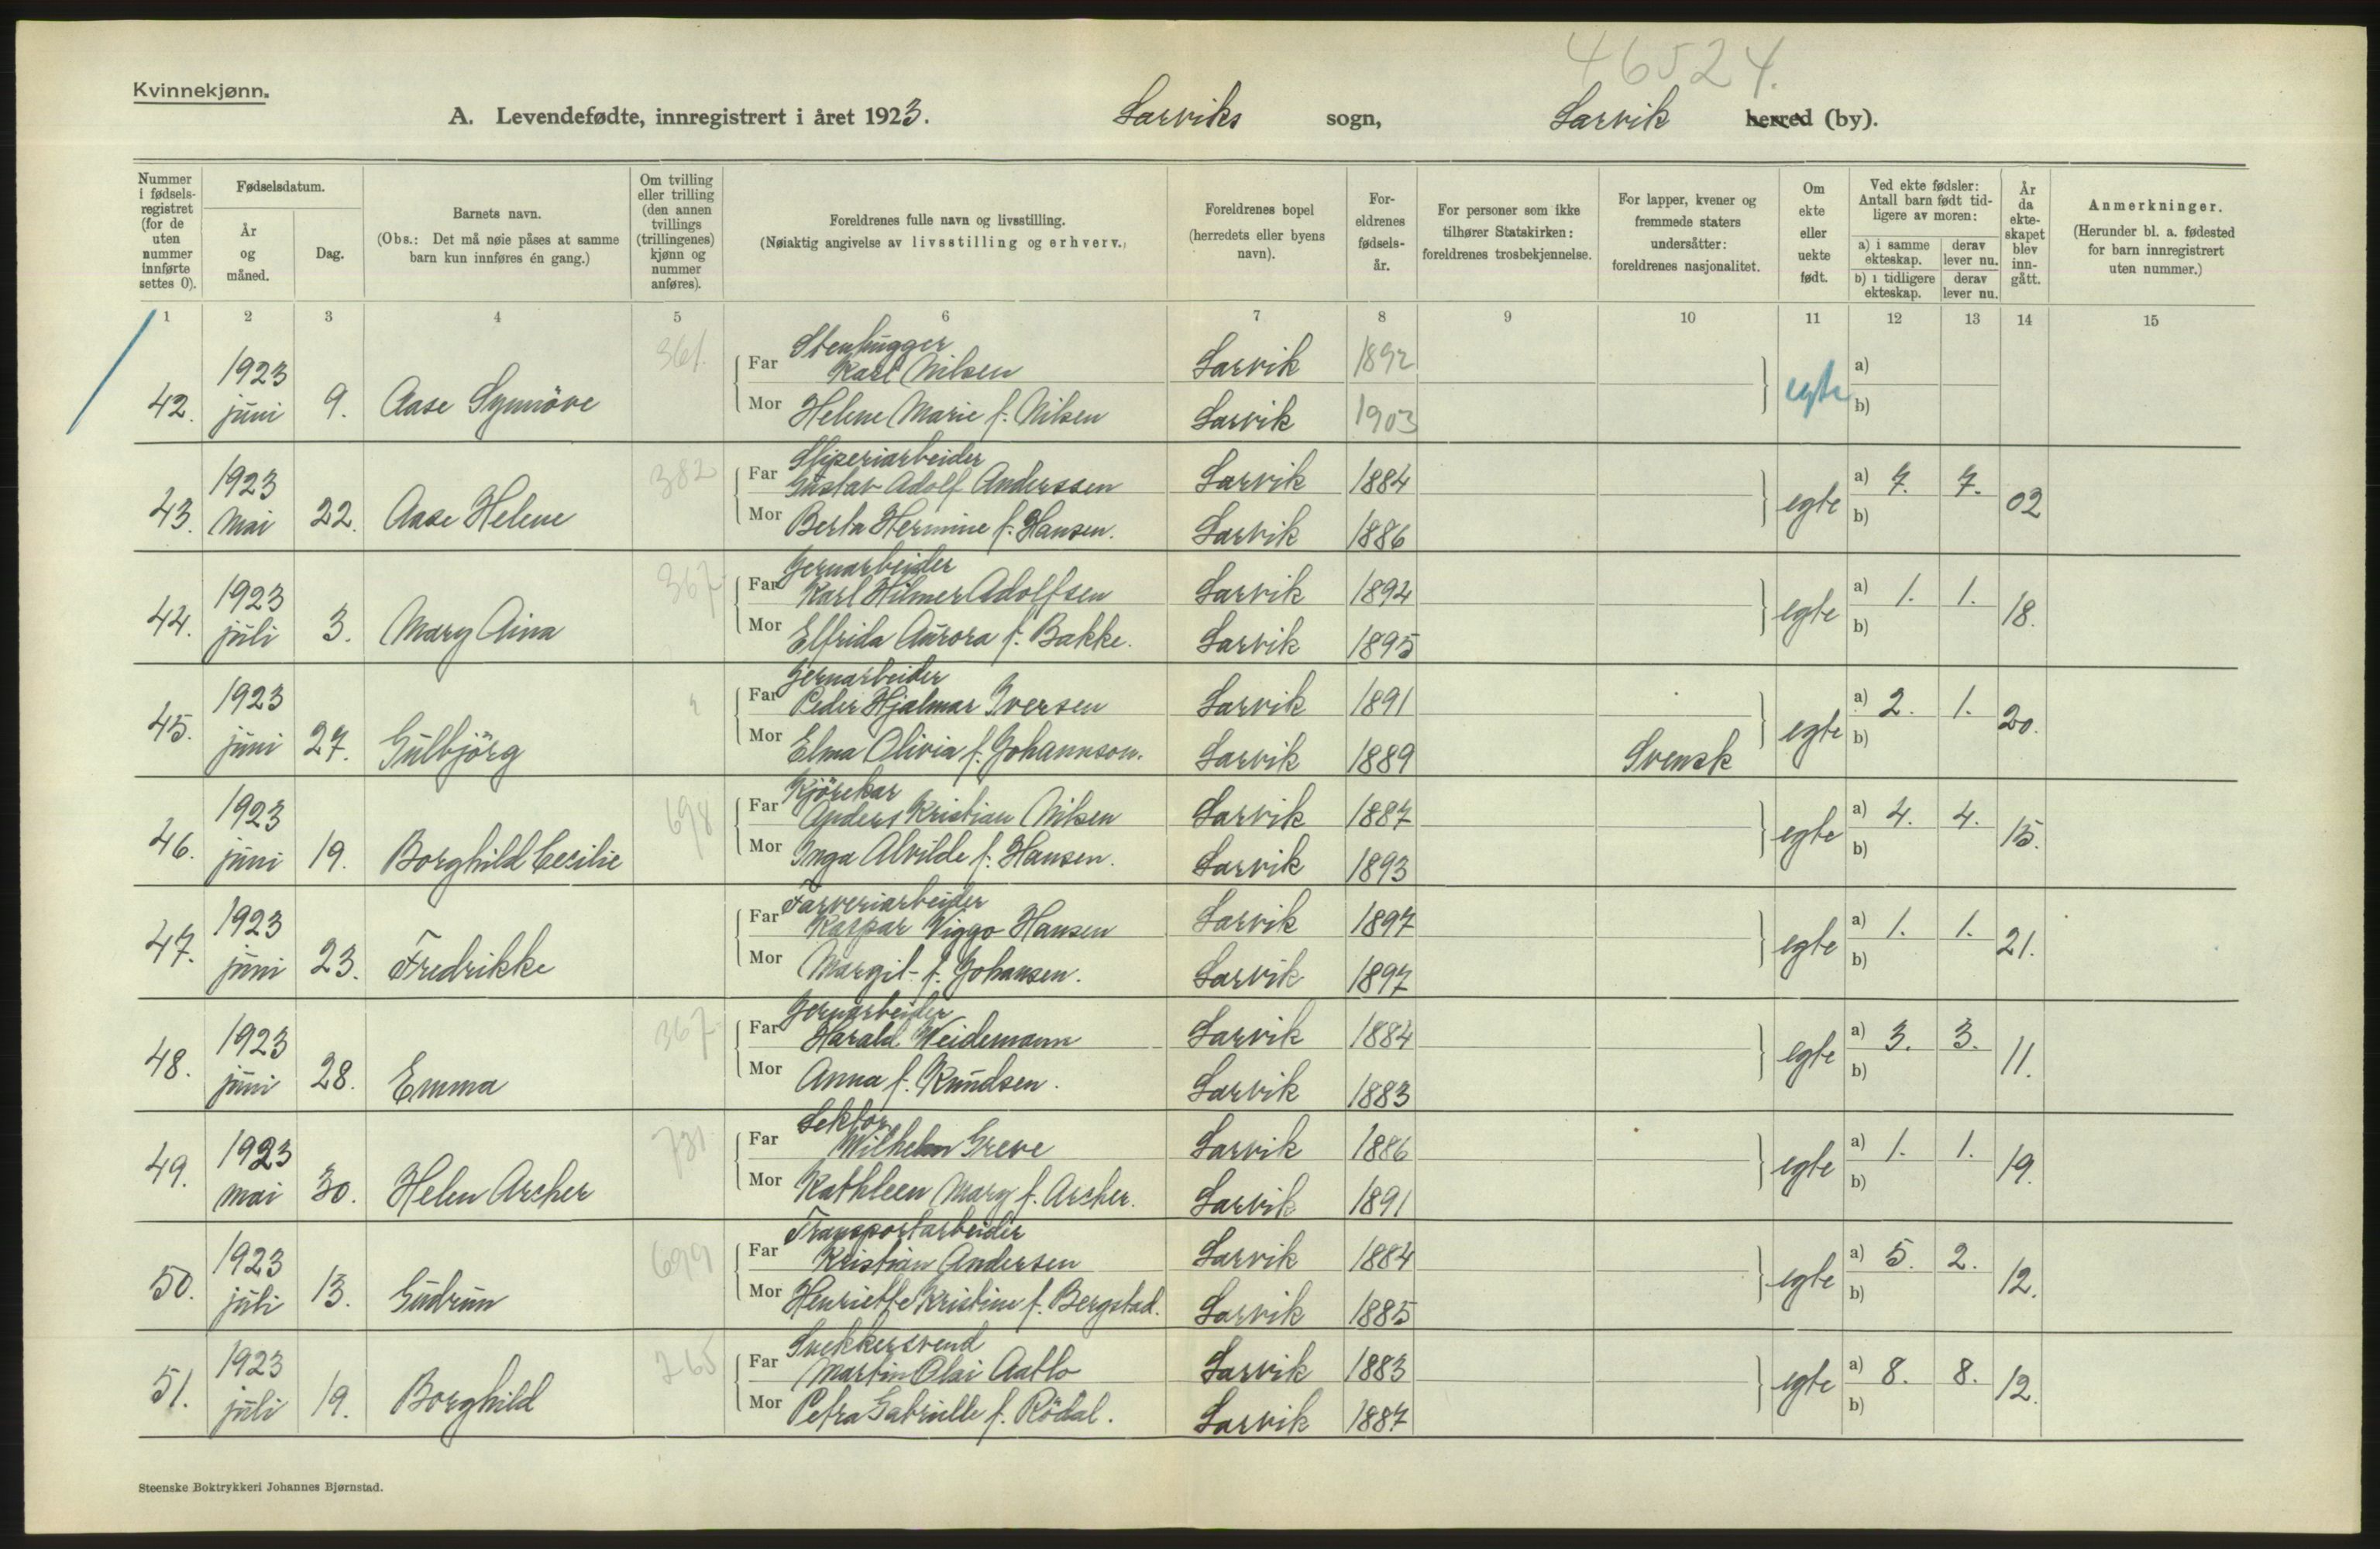 46524.
Kvinnekjønn.
A. Levendefødte, innregistrert i året 1923. Larviks sogn, Larvik herred (by).
Nummer i fødselsregistret (for de uten nummer innførte settes 0).
Fødselsdatum.
År og måned.
Dag.
Barnets navn.
(Obs.: Det må nøie påses at samme barn kun innføres én gang.)
Om tvilling eller trilling (den annen tvillings (trillingenes) kjønn og nummer anføres).
Foreldrenes fulle navn og livsstilling.
(Nøiaktig angivelse av livsstilling og erhverv.)
Foreldrenes bopel (herredets eller byens navn).
Foreldrenes fødselsår.
For personer som ikke tilhører Statskirken: foreldrenes trosbekjennelse.
For lapper, kvener og fremmede staters undersåtter: foreldrenes nasjonalitet.
Om ekte eller uekte født.
Ved ekte fødsler: Antall barn født tidligere av moren:
a) i samme ekteskap. derav lever nu.
b) i tidligere ekteskap. derav lever nu.
År da ekteskapet blev inngått.
Anmerkninger.
(Herunder bl. a. fødested for barn innregistrert uten nummer.)
1 2 3 4 5 6 7 8 9 10 11 12 13 14 15
361. Stenhugger
1923 Far Karl Nilsen Larvik 1892 a)
42. juni 9. Aase Synnöve Mor Helene Marie f. Nilsen Larvik 1903 egte b)
382 Sliperiarbeider
1923 Far Gustav Adolf Anderssen Larvik 1884 a) 7. 7.
43. Mai 22. Aase Helene Mor Berta Hermine f. Hansen. Larvik 1886 egte b) 02
367 Jernarbeider
1923 Far Karl Hilmer Adolfsen Larvik 1894 a) 1. 1.
44. juli 3. Mary Aina Mor Elfrida Aurora f. Bakke. Larvik 1895 egte b) 18.
Jernarbeider
1923 Far Peder Hjalmar Iversen Larvik 1891 a) 2. 1.
45. juni 27. Gulbjörg Mor Elma Olivia f. Johannson. Larvik 1889 Svensk egte b) 20.
698 Kjörekar
1923 Far Anders Kristian Nilsen Larvik 1887 a) 4. 4.
46. juni 19. Borghild Cecilie Mor Inga Alvilde f. Hansen. Larvik 1893 egte b) 15.
Farveriarbeider
1923 Far Kaspar Viggo Hansen Larvik 1897 a) 1. 1.
47. juni 23. Fredrikke Mor Margit f. Johansen. Larvik 1897 egte b) 21.
367 Jernarbeider
1923 Far Harald Weidemann Larvik 1884 a) 3. 3.
48. juni 28. Emma Mor Anna f. Knudsen. Larvik 1883 egte b) 11.
731 Lektor
1923 Far Wilhelm Greve Larvik 1886 a) 1. 1.
49. mai 30. Helen Archer Mor Kathleen Mary f. Archer. Larvik 1891 egte b) 19.
699 Transportarbeider
1923 Far Kristian Andersen Larvik 1884 a) 5. 2.
50. juli 13. Gudrun Mor Henriette Kristine f. Bergstad. Larvik 1885 egte b) 12.
265 Snekkersvend
1923 Far Martin Olai Aatlo Larvik 1883 a) 8. 8.
51. juli 19. Borghild Mor Petra Gabrielle f. Rödal. Larvik 1887 egte b) 12.
Steenske Boktrykkeri Johannes Bjørnstad.